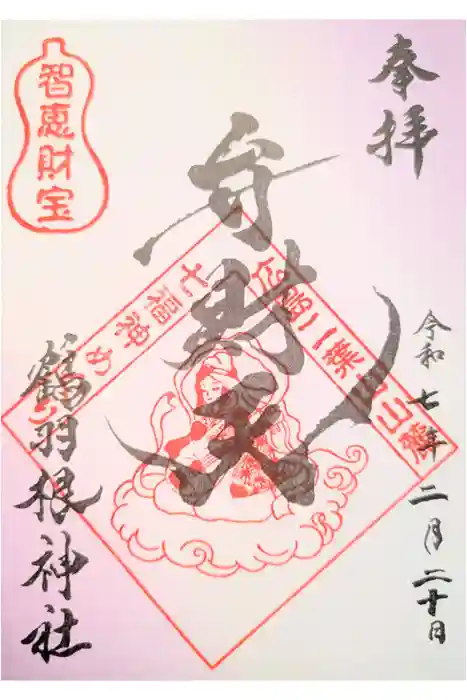 奉拝
智恵財宝
弁財天
広島二葉山山麓
七福神めぐり
令和七年二月二十日
鶴羽根神社